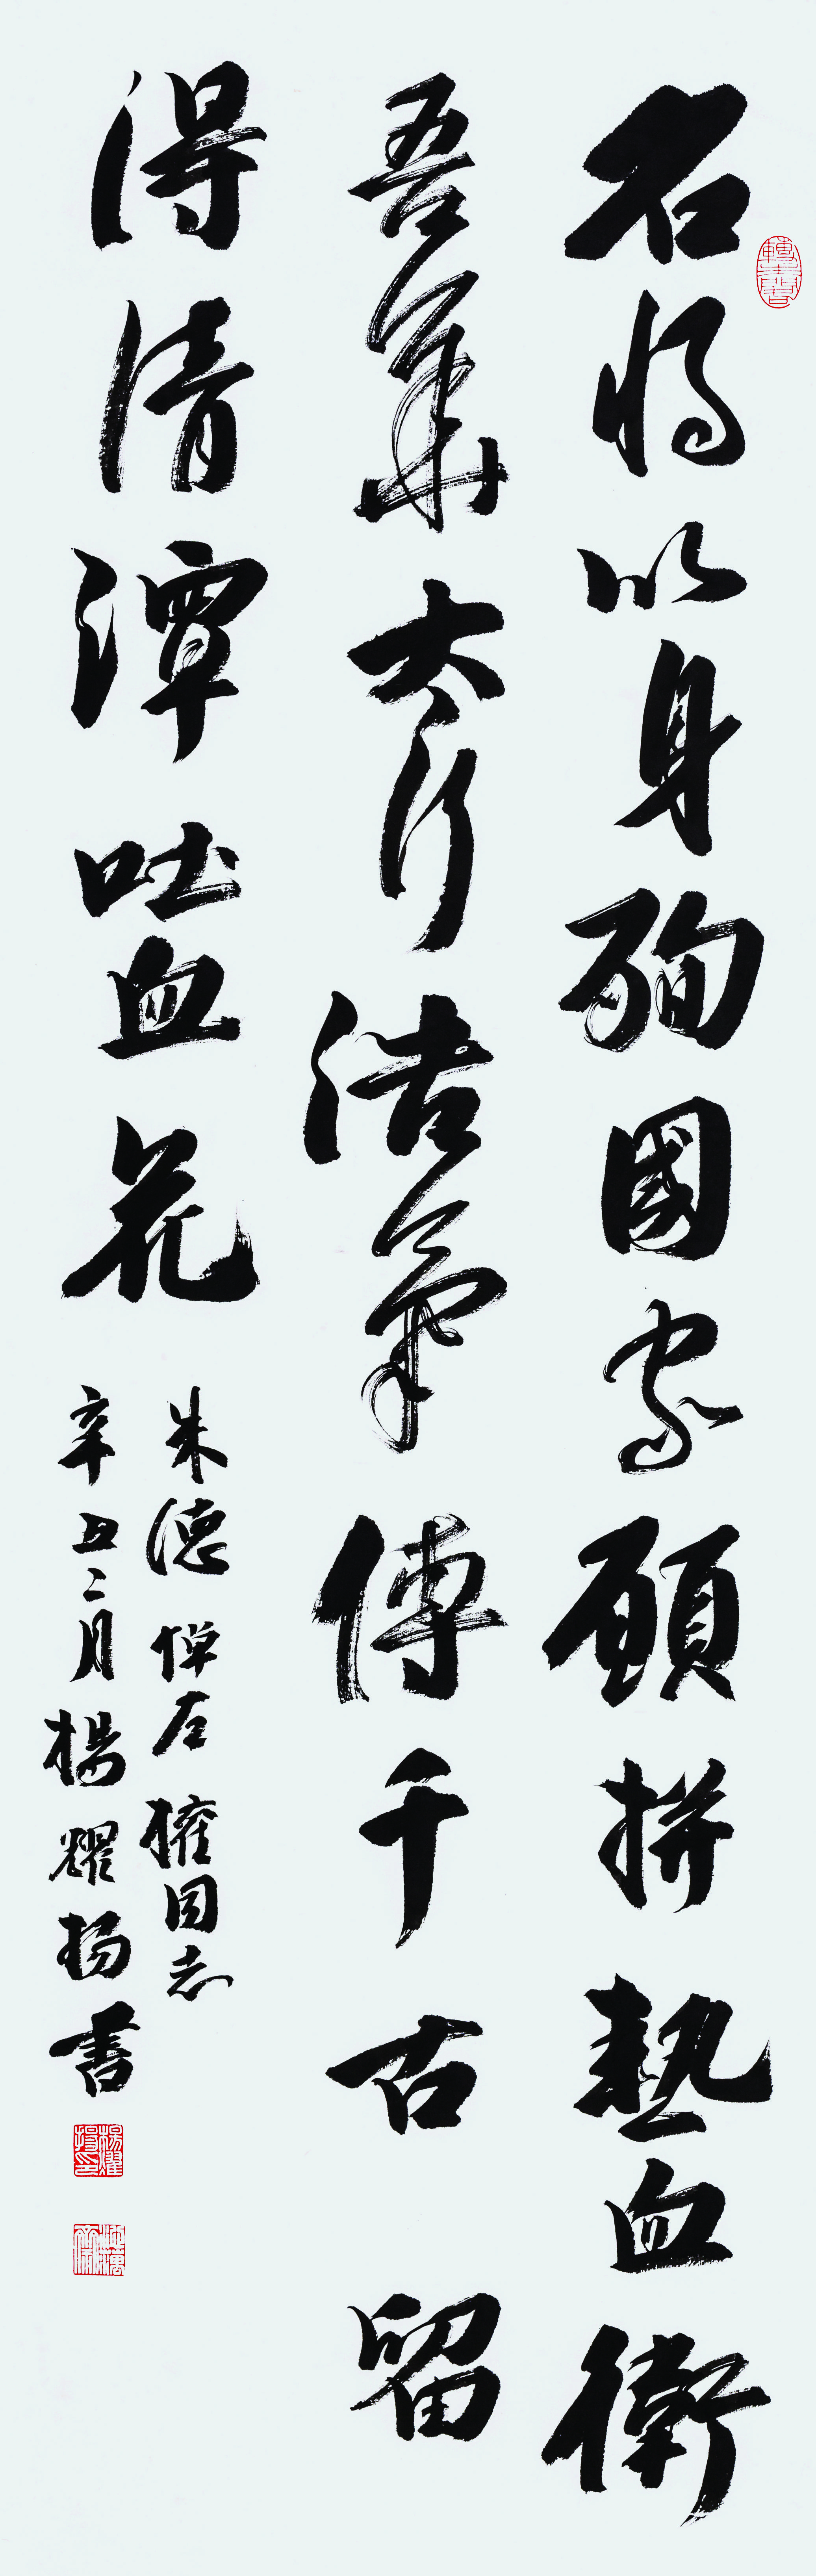 名將以身殉國家願拼熱血衛
吾華太行浩氣傳千古留
得清潭吐血花
朱德悼左權同志
辛丑二月楊耀揚書
楊耀揚印